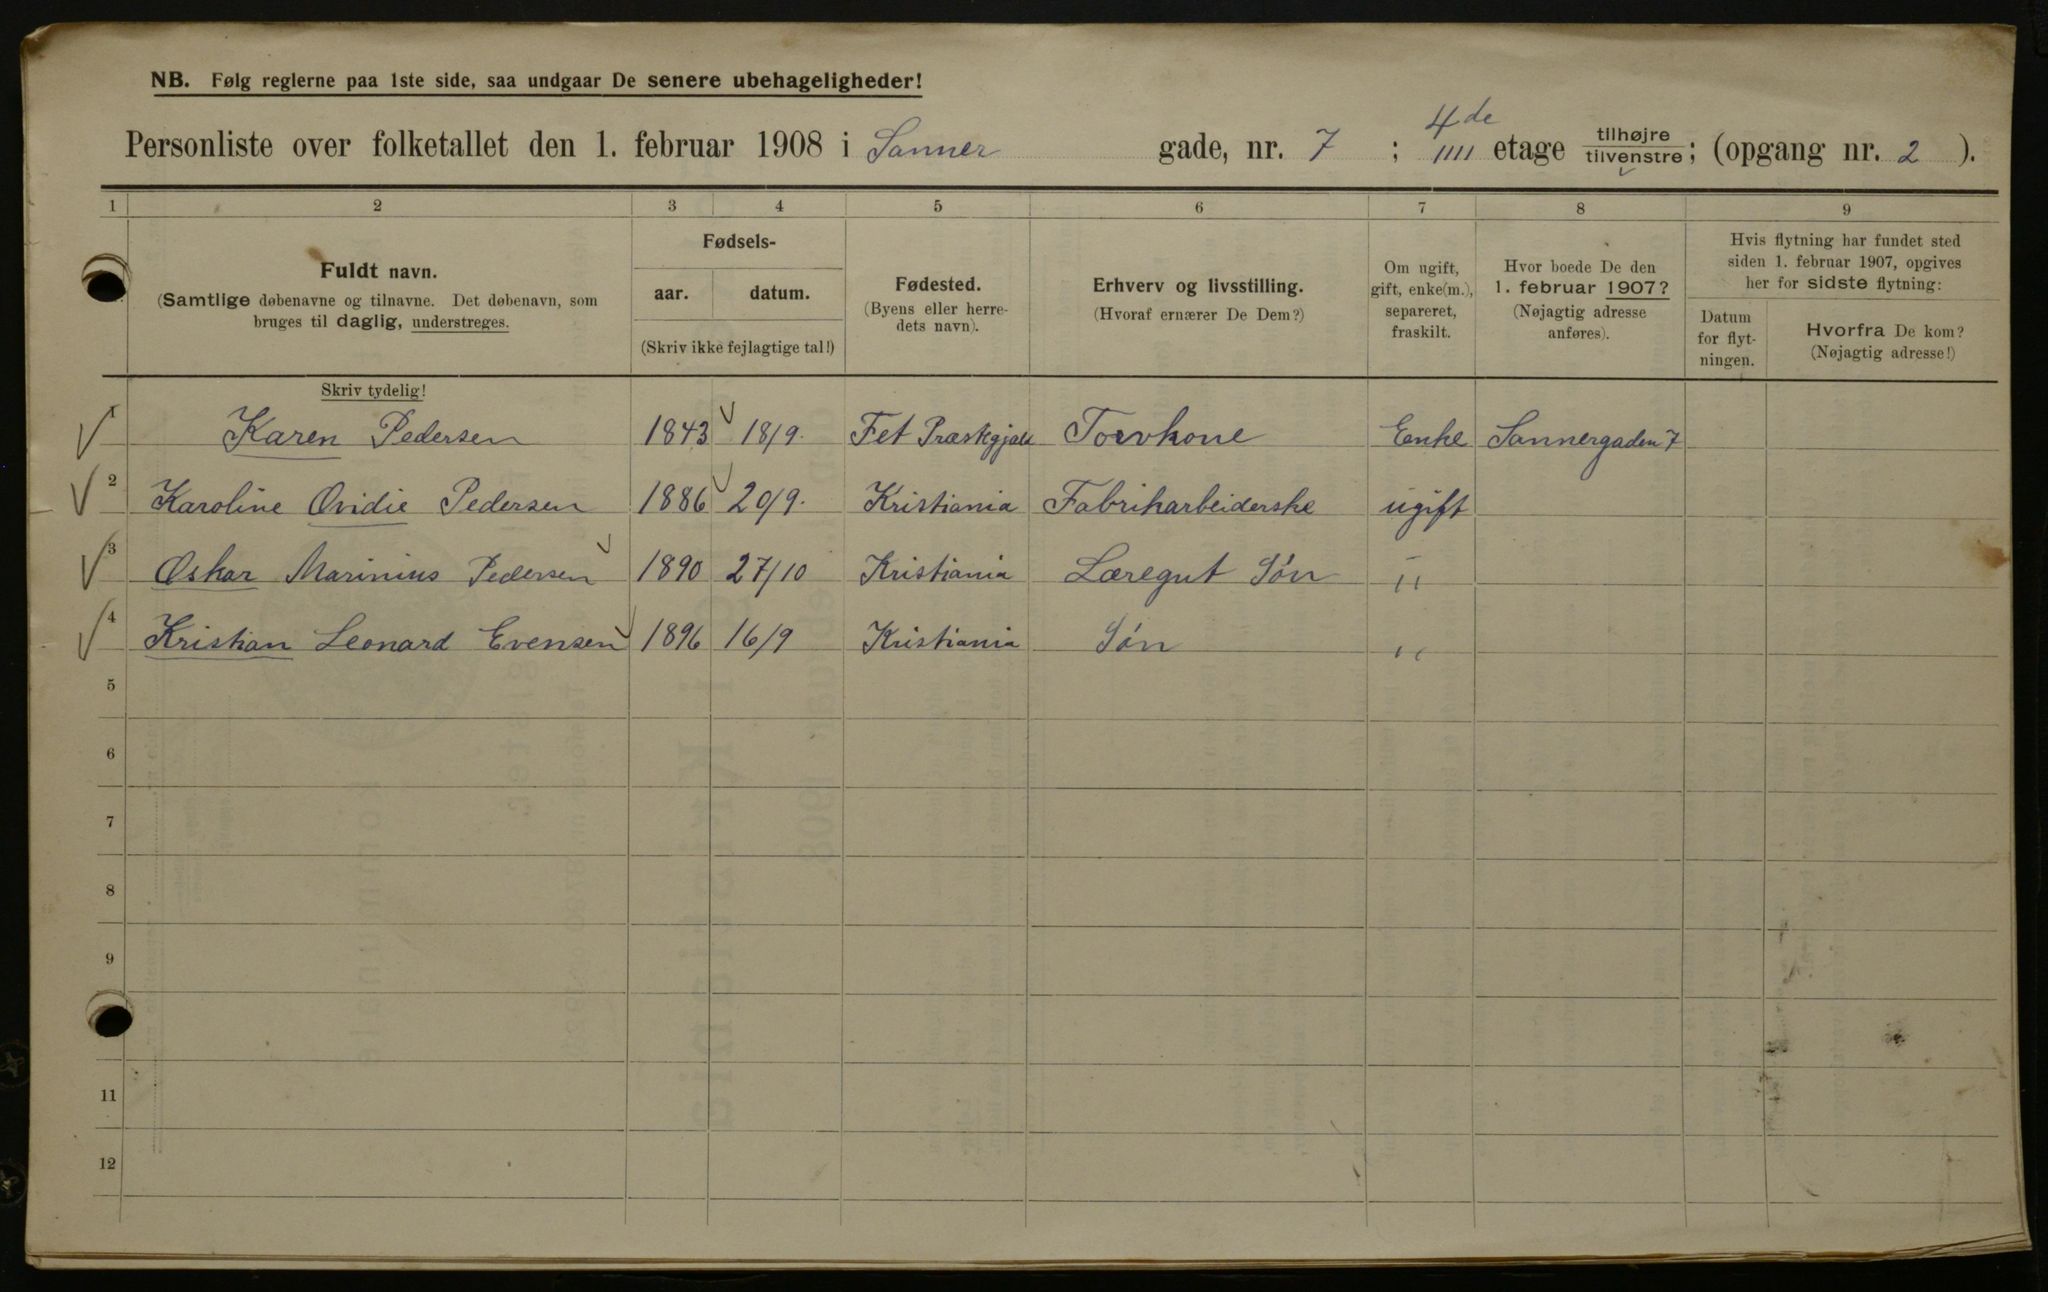 NB. Følg reglerne paa 1ste side, saa undgaar De senere ubehageligheder!
Personliste over folketallet den 1. februar 1908 i Sanner gade, nr. 7 ; 4de IIII etage tilhøjre/tilvenstre; (opgang nr. 2 ).
1 2 3 4 5 6 7 8 9
Fuldt navn.
(Samtlige døbenavne og tilnavne. Det døbenavn, som
bruges til daglig, understreges.
Skriv tydelig!
Fødsels-
aar. datum.
(Skriv ikke fejlagtige tal!)
Fødested.
(Byens eller herre-
dets navn).
Erhverv og livsstilling.
(Hvoraf ernærer De Dem?)
Om ugift,
gift, enke(m.),
separeret,
fraskilt.
Hvor boede De den
1. februar 1907?
(Nøjagtig adresse
anføres).
Hvis flytning har fundet sted
siden 1. februar 1907, opgives
her for sidste flytning:
Datum
for flyt-
ningen.
Hvorfra De kom?
(Nøjagtig adresse!)
1 Karen Pedersen 1843 18/9. Fet Præstegjæld Torvkone Enke Sannergaden 7
2 Karoline Ovidie Pedersen 1886 20/9. Kristiania Fabrikarbeiderske ugift
3 Oskar Marinius Pedersen 1890 27/10 Kristiania Læregut Søn "
4 Kristian Leonard Evensen 1896 16/9 Kristiania Søn "
5
6
7
8
9
11
12